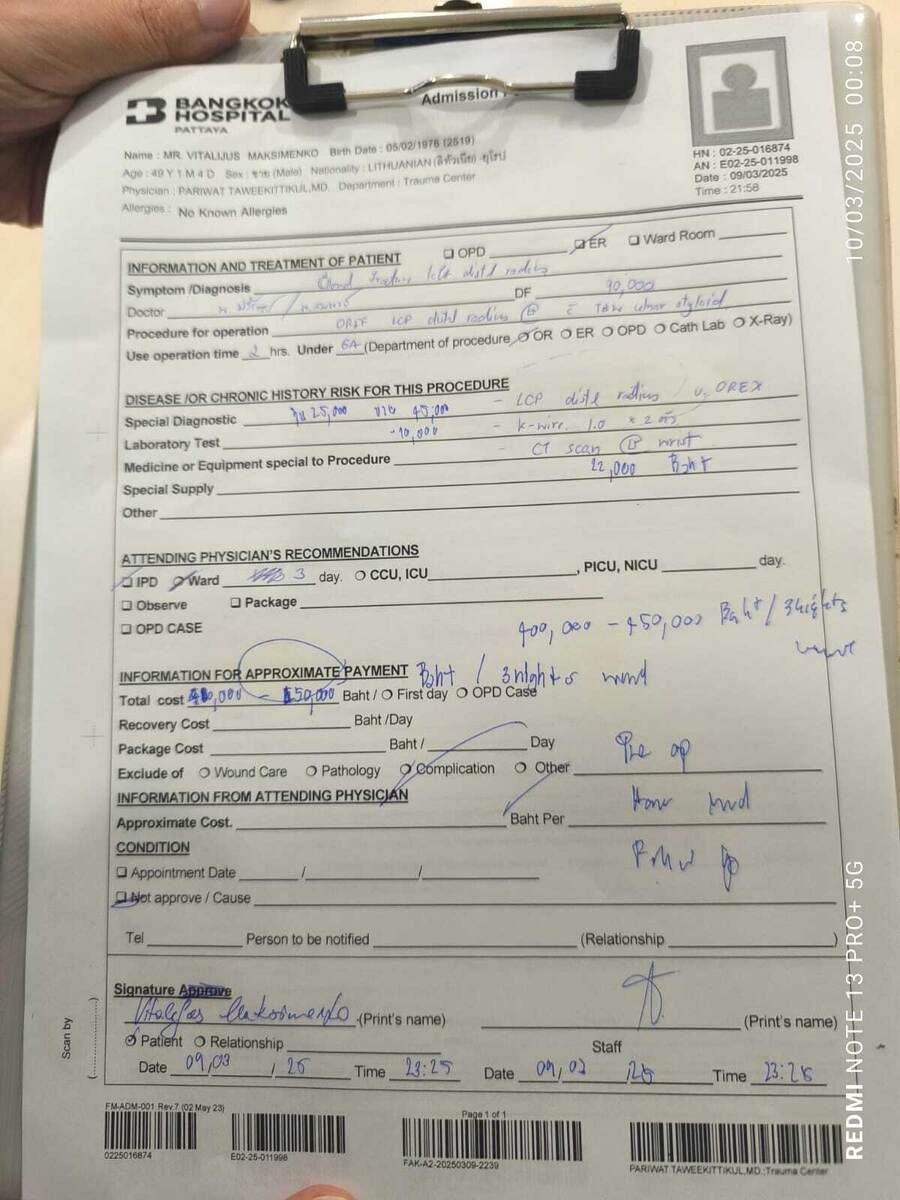 Admission
BANGKOK
HOSPITAL
PATTAYA
Name : MR. VITALIJUS MAKSIMENKO Birth Date : 05/02/1976 (2519)
Age : 49 Y 1 M 4 D Sex : ชาย (Male) Nationality : LITHUANIAN (ลิทัวเนีย)-ยุโรป
Physician : PARIWAT TAWEEKITTIKUL,MD. Department : Trauma Center
Allergies : No Known Allergies
HN : 02-25-016874
AN : E02-25-011998
Date : 09/03/2025
Time : 21:58
INFORMATION AND TREATMENT OF PATIENT OPD ER Ward Room
Symptom /Diagnosis Closed fracture left distal radius
Doctor DF 90,000
Procedure for operation ORIF LCP distal radius ulnar styloid
Use operation time 2 hrs. Under GA (Department of procedure OR ER OPD Cath Lab X-Ray)
DISEASE /OR CHRONIC HISTORY RISK FOR THIS PROCEDURE
- LCP distal radius OREX
Special Diagnostic 25,000 45,000
- k-wire 1.0 x 2
Laboratory Test -10,000
- CT scan wrist
Medicine or Equipment special to Procedure
22,000 Baht
Special Supply
Other
ATTENDING PHYSICIAN'S RECOMMENDATIONS
IPD Ward 3 day. CCU, ICU , PICU, NICU day.
Observe Package
OPD CASE
400,000 - 450,000 Baht / 3 nights
INFORMATION FOR APPROXIMATE PAYMENT Baht / 3 nights
Total cost Baht / First day OPD Case
Recovery Cost Baht /Day
Package Cost Baht / Day
Pre op
Exclude of Wound Care Pathology Complication Other
INFORMATION FROM ATTENDING PHYSICIAN
Home med
Approximate Cost. Baht Per
CONDITION
Follow up
Appointment Date / /
Not approve / Cause
Tel Person to be notified (Relationship )
Signature Approve
Vitalijus Maksimenko (Print's name) (Print's name)
Patient Relationship Staff
Date 09/03 / 25 Time 23:25 Date 09/03 /25 Time 23:25
Scan by
(..............)
FM-ADM-001 Rev.7 (02 May 23)
Page 1 of 1
0225016874
E02-25-011998
FAK-A2-20250309-2239
PARIWAT TAWEEKITTIKUL,MD.;Trauma Center
10/03/2025 00:08
REDMI NOTE 13 PRO+ 5G